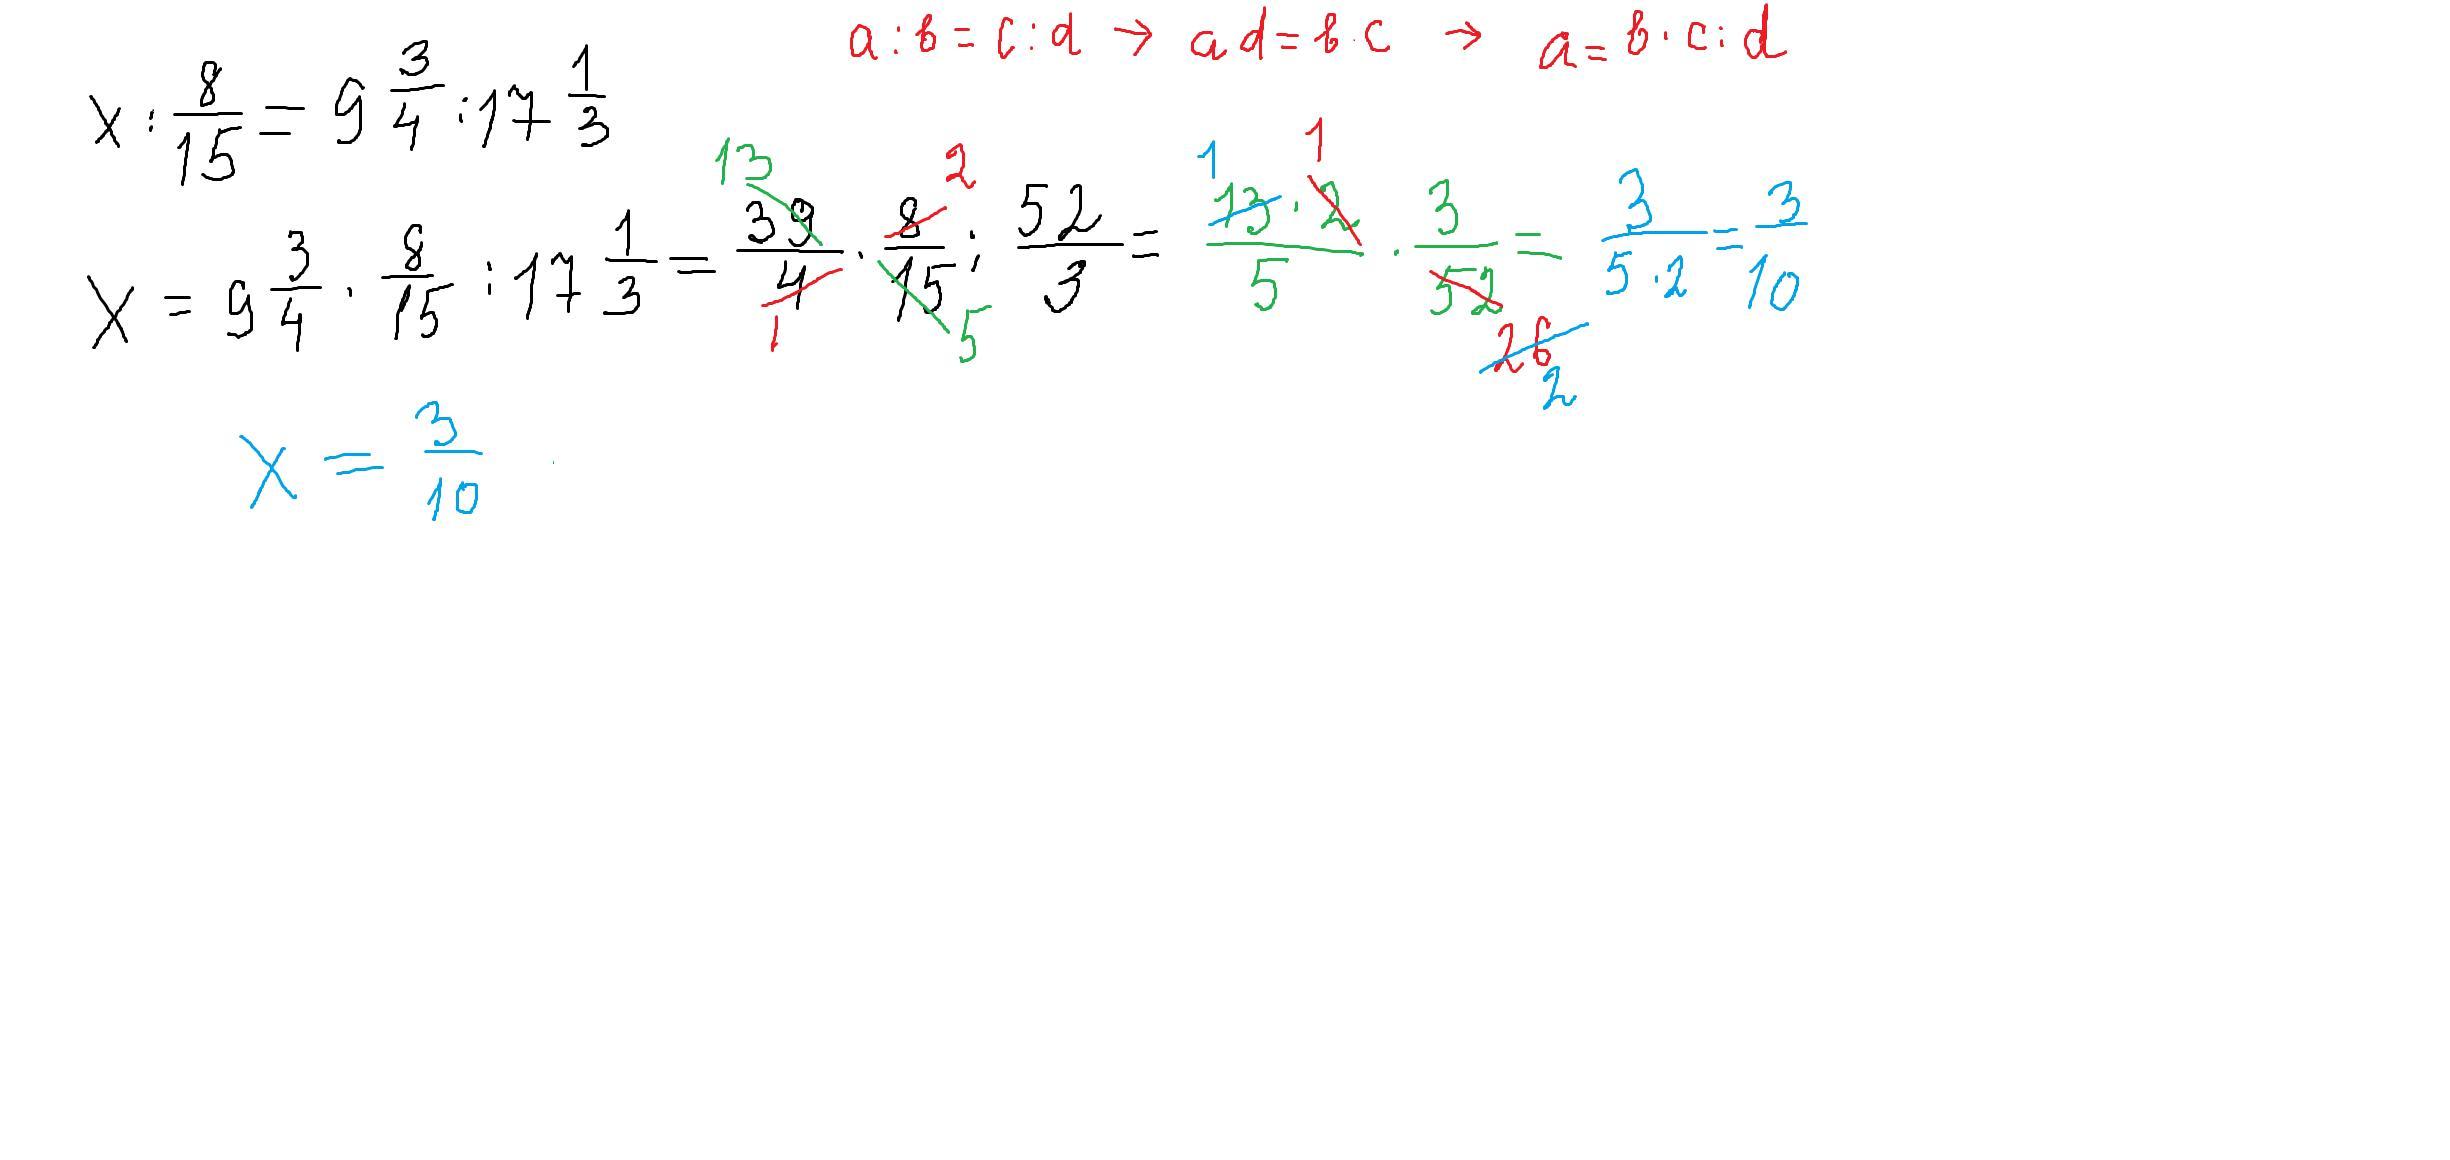 a : b = c : d → a d = b · c → a = b · c : d
x : 8/15 = 9 3/4 : 17 1/3
x = 9 3/4 · 8/15 : 17 1/3 = 39/4 · 8/15 : 52/3 = 13 · 2/5 · 3/52 = 3/5 · 2 = 3/10
13 2 1 1
1 5 26
2
x = 3/10